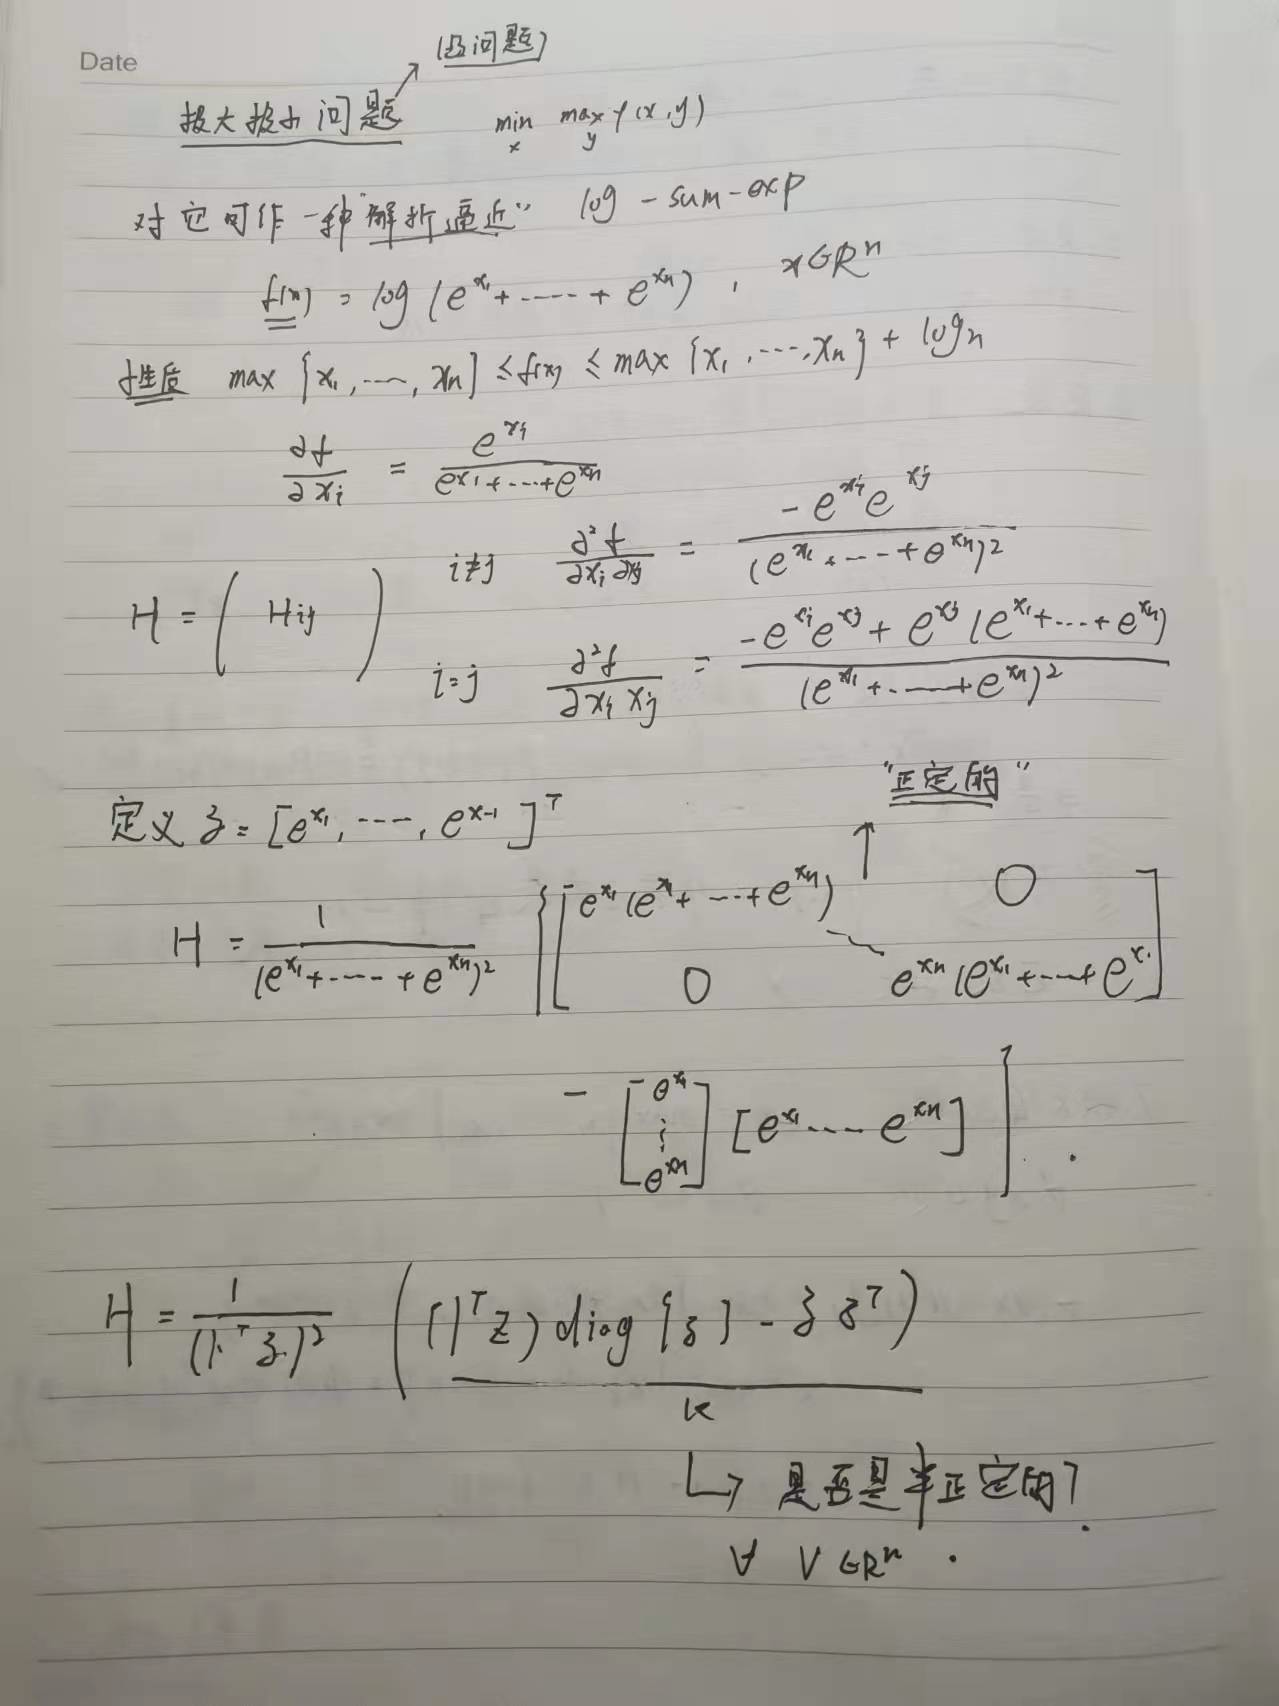 Date
(凸问题)
极大极小问题 min_x max_y f(x,y)
对它可作一种"解析逼近" log-sum-exp
f(x) = log(e^{x_1}+……+e^{x_n}), x∈R^n
性质 max{x_1,……,x_n} ≤ f(x) ≤ max{x_1,……,x_n} + log n
∂f/∂x_i = e^{x_i}/(e^{x_1}+…+e^{x_n})
i≠j ∂²f/∂x_i∂x_j = -e^{x_i}e^{x_j}/(e^{x_1}+……+e^{x_n})²
H = (H_{ij})
i=j ∂²f/∂x_i x_j = (-e^{x_i}e^{x_j} + e^{x_j}(e^{x_1}+…+e^{x_n}))/(e^{x_1}+……+e^{x_n})²
"正定的"
定义 z = [e^{x_1},……, e^{x-1}]^T
H = 1/(e^{x_1}+……+e^{x_n})² { [e^{x_1}(e^{x_1}+…+e^{x_n}) 0
0 e^{x_n}(e^{x_1}+…+e^{x.}]
- [e^{x_1} ⋮ e^{x_n}] [e^{x_1}……e^{x_n}] }.
H = 1/(1^T z)² ((1^T z) diag{z} - z z^T)
K
↳ 是否是半正定的?
∀ V∈R^n.